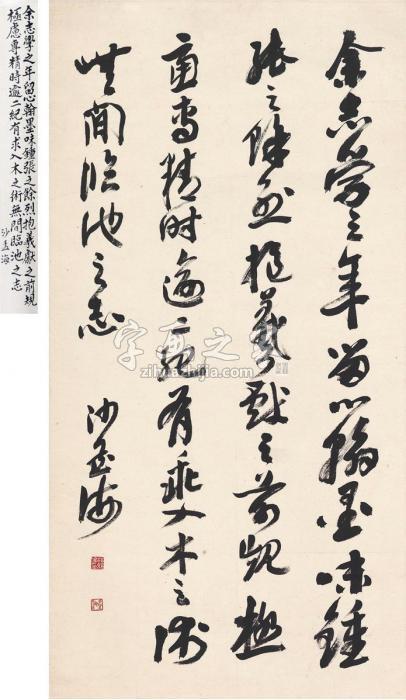 余志學之年留心翰墨味鍾
張之餘烈挹羲獻之前規極
慮專精時逾二紀有乖入木之術
無間臨池之志 沙孟海
余志學之年留心翰墨味鍾張之餘烈挹羲獻之前規
極慮專精時逾二紀有求入木之術無間臨池之志
沙孟海
字画之家
zihuazhijia.com